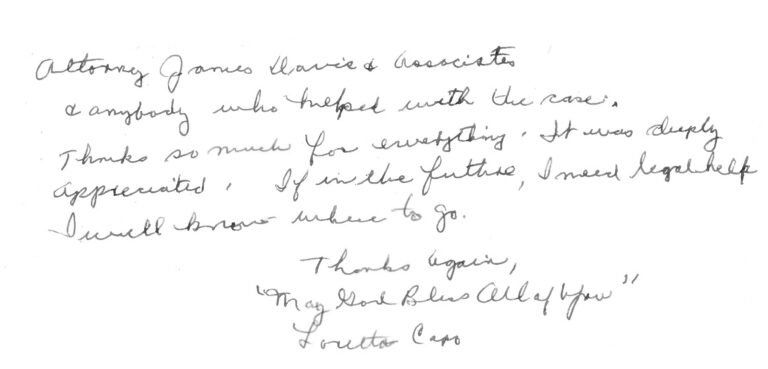 Attorney James Davis & Associates
& anybody who helped with the case.
Thanks so much for everything. It was deeply
appreciated. If in the future, I need legal help
I will know where to go.
Thanks Again,
"May God Bless All of You"
Loretta Caro